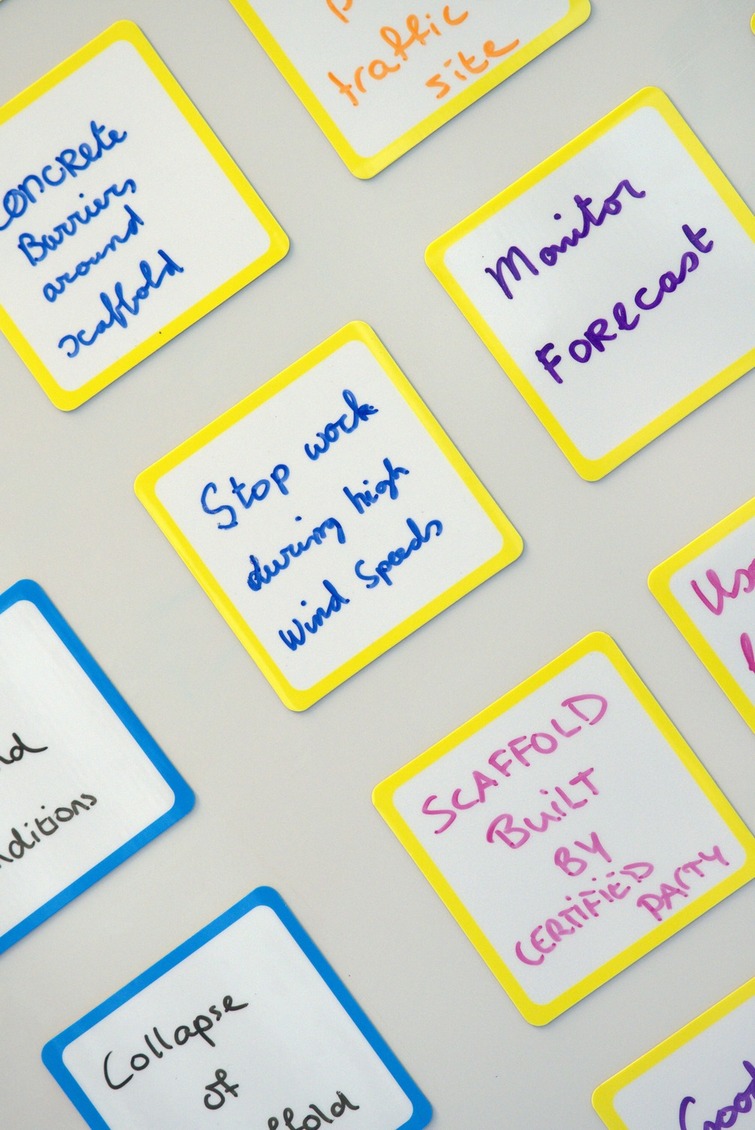 traffic
site
CONCRETE
Barriers
around
scaffold
Monitor
FORECAST
Stop work
during high
Wind Speeds
SCAFFOLD
BUILT
BY
CERTIFIED
PARTY
Collapse
of